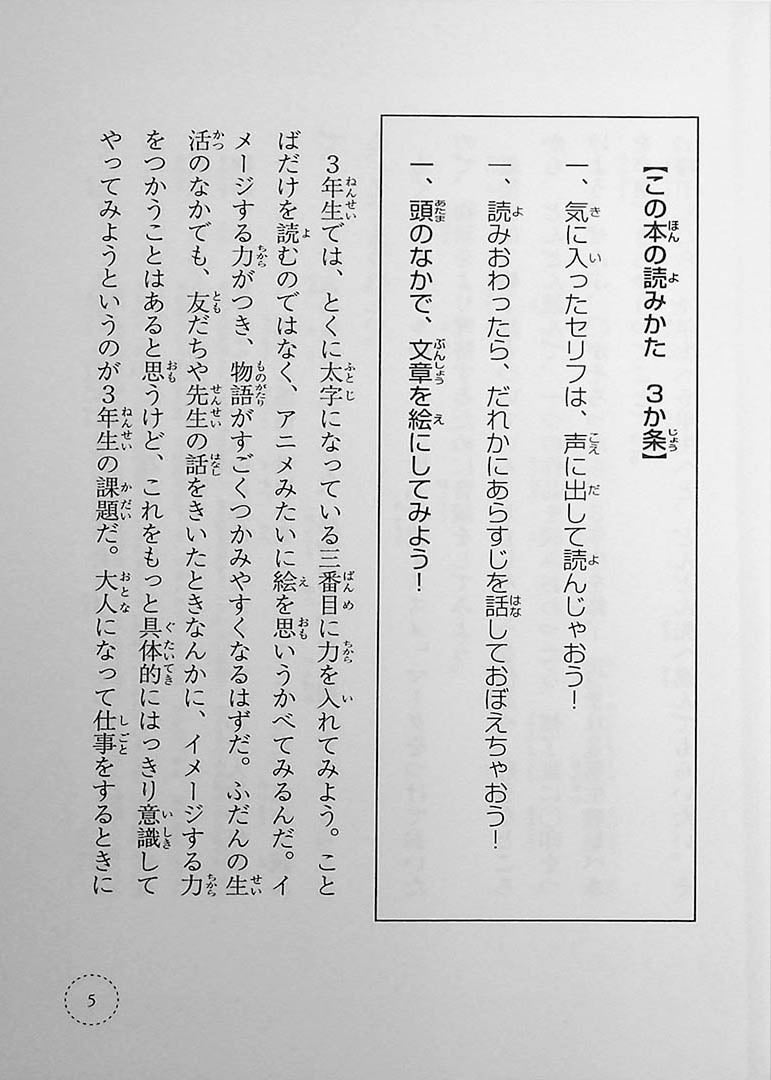 【この本の読みかた　3か条】
一、気に入ったセリフは、声に出して読んじゃおう！
一、読みおわったら、だれかにあらすじを話しておぼえちゃおう！
一、頭のなかで、文章を絵にしてみよう！
3年生では、とくに太字になっている三番目に力を入れてみよう。こと
ばだけを読むのではなく、アニメみたいに絵を思いうかべてみるんだ。イ
メージする力がつき、物語がすごくつかみやすくなるはずだ。ふだんの生
活のなかでも、友だちや先生の話をきいたときなんかに、イメージする力
をつかうことはあると思うけど、これをもっと具体的にはっきり意識して
やってみようというのが3年生の課題だ。大人になって仕事をするときに
5